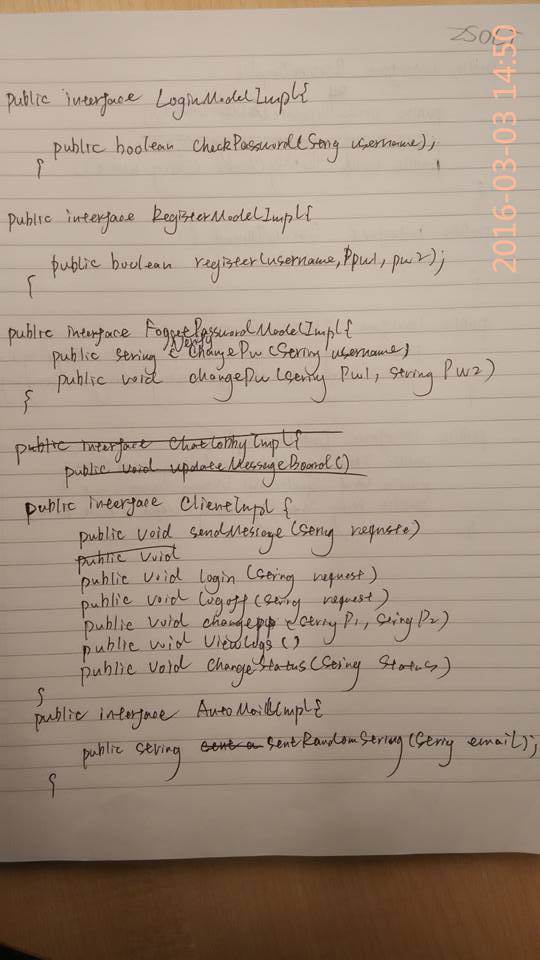 ZSOLT
2016-03-03 14:50
public interface LoginModelImpl{
public boolean checkPassword(String username);
}
public interface RegisterModelImpl{
public boolean register(username, pw1, pw2);
}
public interface ForgetPasswordModelImpl{
Verify
public string changePw(String username)
public void changePw(string Pw1, string Pw2)
}
public interface ChatLobbyImpl{
public void updateMessageBoard()
public interface ClientImpl {
public void sendMessage(String request)
public void
public void login(string request)
public void logoff(string request)
public void changepp(string P1, string P2)
public void ViewLogs()
public void ChangeStatus(String Status)
}
public interface AutoMailImpl{
public string sent a sentRandomString(String email);
}